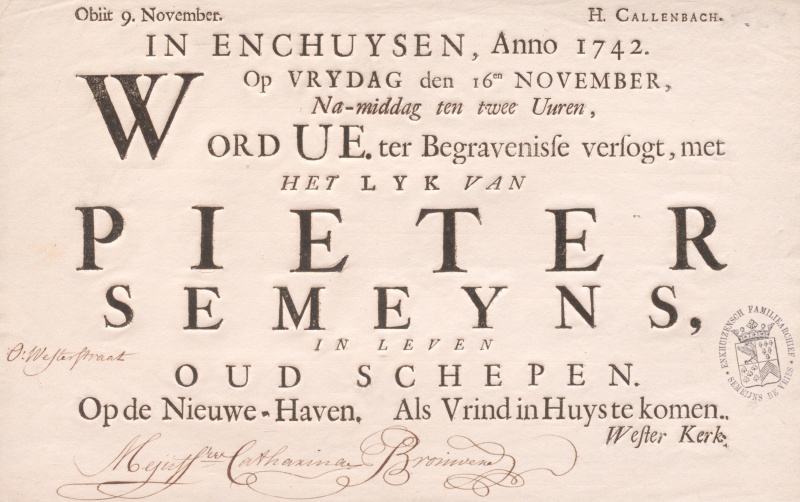 Obiit 9. November. H. CALLENBACH.
IN ENCHUYSEN, Anno 1742.
Op VRYDAG den 16en NOVEMBER,
Na-middag ten twee Uuren,
WORD UE. ter Begravenisse versogt, met
HET LYK VAN
PIETER
SEMEYNS,
IN LEVEN
OUD SCHEPEN.
Op de Nieuwe-Haven. Als Vrind in Huys te komen.
Wester Kerk.
O: Westerstraat
Mejuffrw Catharina
ENKHUIZENSCH FAMILIEARCHIEF
SEMEIJNS DE VRIES